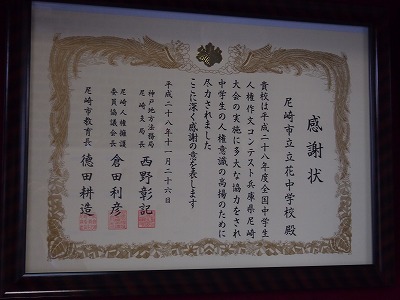 感謝状
尼崎市立立花中学校 殿
貴校は平成二十八年度全国中学生
人権作文コンテスト兵庫県尼崎
大会の実施に多大な協力をされ
中学生の人権意識の高揚のために
尽力されました
ここに深く感謝の意を表します
平成二十八年十一月二十六日
神戸地方法務局
尼崎支局長 西野彰記
尼崎人権擁護
委員協議会長 倉田利彦
尼崎市教育長 德田耕造